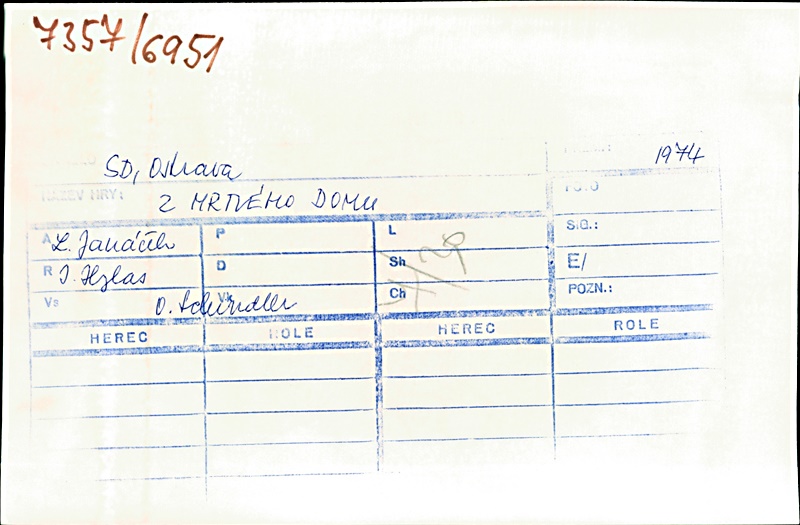 7357/6951
SD, Ostrava 1974
NÁZEV HRY: Z MRTVÉHO DOMU FOTO
A L. Janáček P L SIG.:
R I. Hylas D Sh E/
Vs O. Schindler Vk Ch POZN.:
HEREC ROLE HEREC ROLE